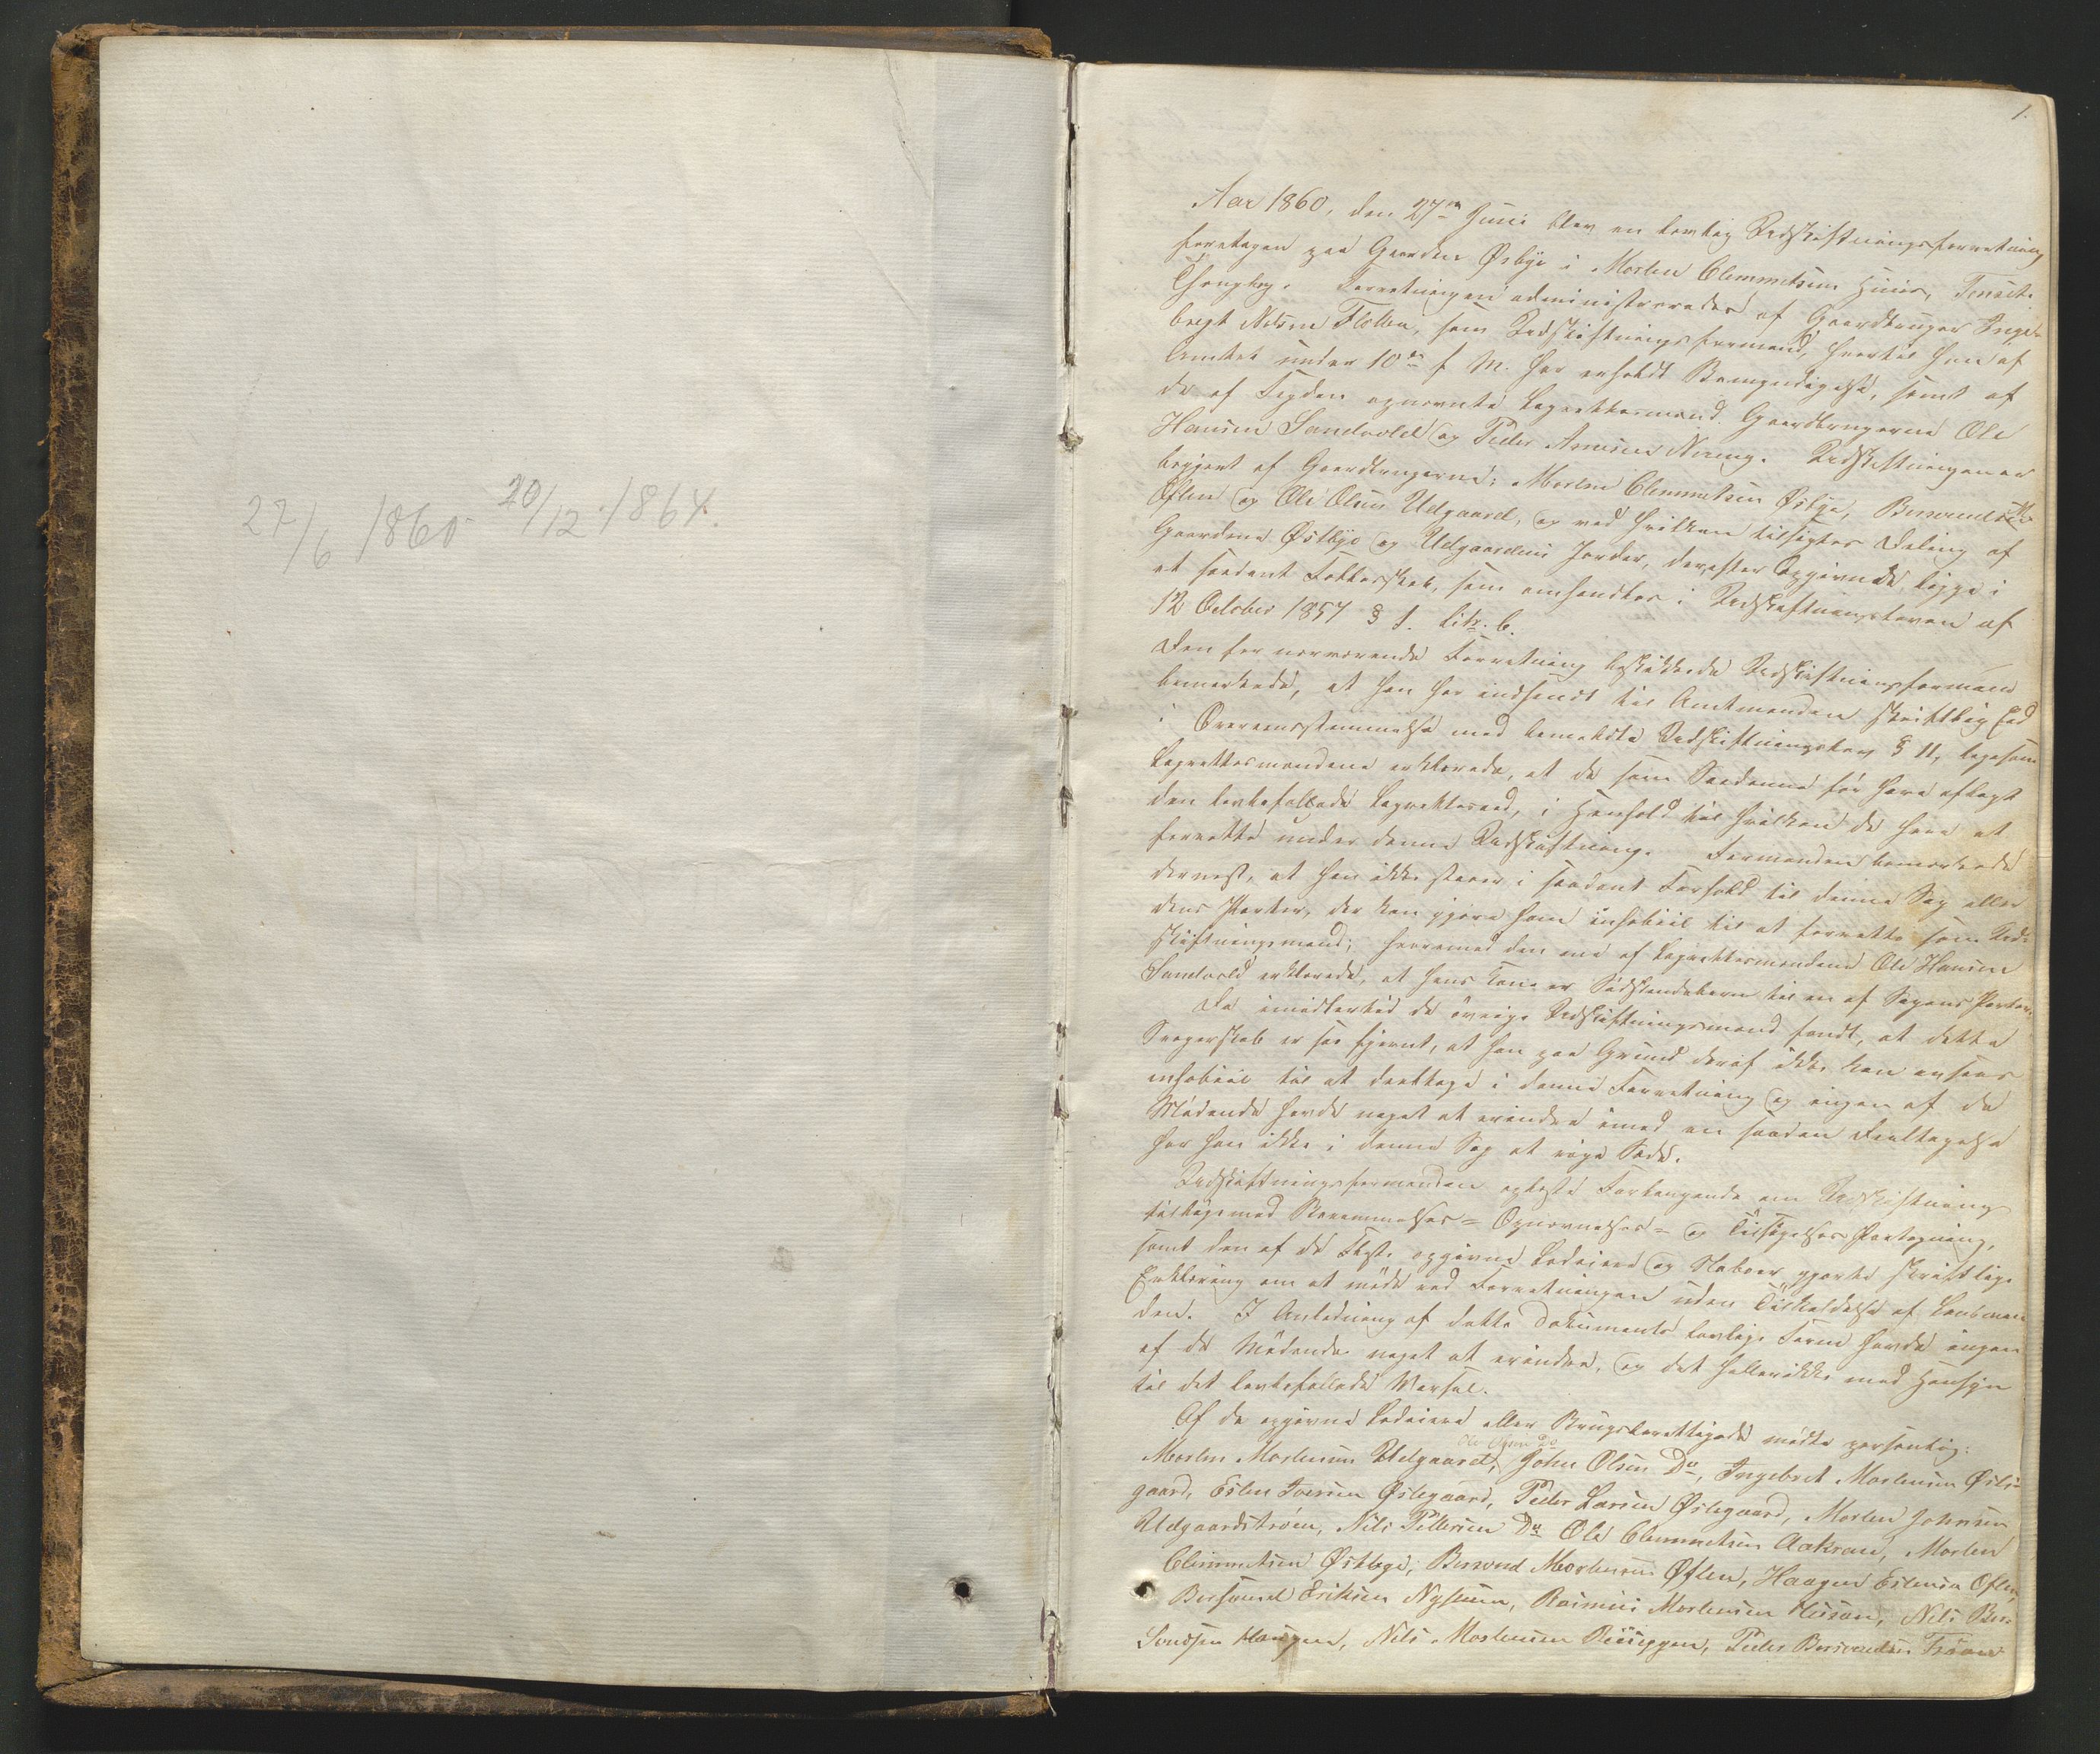 27/6 1860 20/12 1864.
1.
Aar 1860, den 27de Juni blev en lovlig Udskiftningsforretning
foretagen paa Gaarden Øsbye i Morten Clemmetsens Huus, Tønsæt
Thinglag. Forretningen administreredes af Gaardbruger Inge-
bregt Nilsen Floden, som Udskiftningsformand, hvortil han af
Amtet under 10de f. M. har erholdt Bemyndigelse, samt af
de af Fogden opnævnte Lagrettesmænd Gaardbrugerne Ole
Hansen Sandvold og Peder Arnesen Nereng. Udskiftningen er
begjært af Gaardbrugerne: Morten Clemmetsen Østbye, Bersvend M.
Øflen og Ole Olsen Udgaard, og ved hvilken tilsigtes Deling af
Gaardene Østbye og Udgaardens Jorder, der efter Opgivende ligge i
et saadant Fællesskab, som omhandles i Udskiftningsloven af
12 October 1857 § 1. Litr. b.
Den for nærværende Forretning beskikkede Udskiftningsformand
bemærkede, at han har indsendt til Amtmanden skriftlig Ed
i Overeensstemmelse med bemeldte Udskiftningslov § 11, ligesom
Lagrettesmændene erklærede, at de som Saadanne før have aflagt
den lovbefallede Lagrettesed, i Henhold til hvilken de have at
forrette under denne Udskiftning. Formanden bemærkede
dernæst, at han ikke staaer i saadant Forhold til denne Sag eller
dens Parter, der kan gjøre ham inhabiil til at forrette som Ud-
skiftningsmand; hvoremod den ene af Lagrettesmændene Ole Hansen
Sandvold erklærede, at hans Kone er Sødskendebarn til en af Sagens Parter.
Da imidlertid de øvrige Udskiftningsmænd fandt, at dette
Svogerskab er saa fjernt, at han paa Grund deraf ikke kan ansees
inhabiil til at deeltage i denne Forretning og ingen af de
Mødende havde noget at erindre imod en saadan Deeltagelse
har han ikke i denne Sag at vige Sæde.
Udskiftningsformanden oplæste Forlangende om Udskiftning
tilligemed Berammelses- Opnævnelses- og Tilsigelses Paategning,
samt den af de Fleste opgivne Lodeiere og Naboer gjorte skriftlige
Erklæring om at møde ved Forretningen uden Tilkaldelse af Lensman-
den. I Anledning af dette Dokuments lovlige Form havde ingen
af de Mødende noget at erindre, og det hellerikke med Hensyn
til det lovbefallede Varsel.
Af de opgivne Lodeiere eller Brugsberettigede mødte personlig:
Ole Olsen Do
Morten Mortensen Udgaard, John Olsen Do, Ingebret Mortensen Øste-
gaard, Esten Iversen Østegaard, Peder Larsen Østegaard, Morten Johnsen
Udgaardstrøen, Nils Pettersen Do Ole Clemmetsen Aakran, Morten
Clemmetsen Østbye, Bersvend Mortensen Øflen, Haagen Estensen Øflen,
Bersvend Eriksen Nystuen, Rasmus Mortensen, Nils Ber-
svendsen Haugen, Nils Mortensen, Peder Bersvendsen Trøen